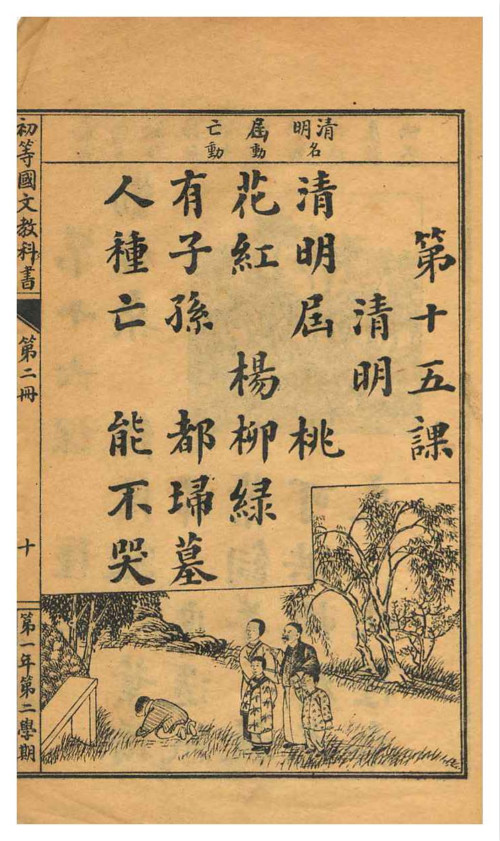 清明 名
屆 動
亡 動
第十五課
清明
清明屆 桃
花紅 楊柳綠
有子孫 都埽墓
人種亡 能不哭
初等國文教科書 第二冊 十 第一年第二學期